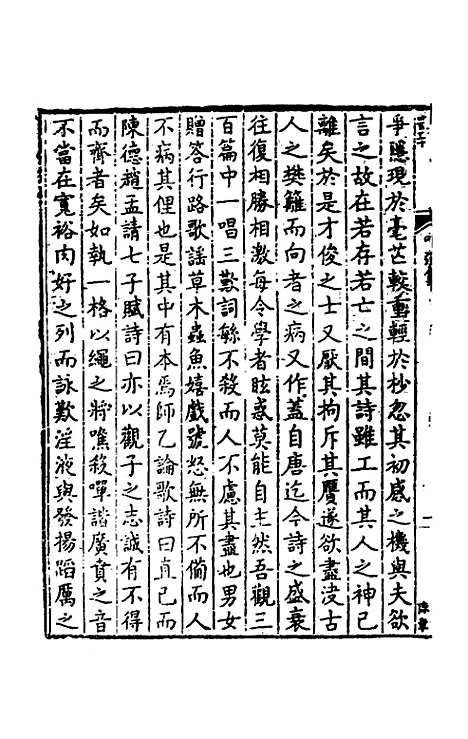 爭隱現於毫芒較重輕於杪忽其初感之機與夫欲
言之故在若存若亡之間其詩雖工而其人之神已
離矣於是才俊之士又厭其拘斥其贗遂欲盡決古
人之樊籬而向者之病又作蓋自唐迄今詩之盛衰
往復相勝相激每令學者眩惑莫能自主然吾觀三
百篇中一唱三歎詞緐不殺而人不慮其盡也男女
贈答行路歌謠草木蟲魚嬉戲號怒無所不備而人
不病其俚也是其中有本焉師乙論歌詩曰直己而
陳德趙孟請七子賦詩曰亦以觀子之志誠有不得
而齊者矣如執一格以繩之將噍殺嘽諧廣賁之音
不當在寬裕肉好之列而詠歎淫液與發揚蹈厲之